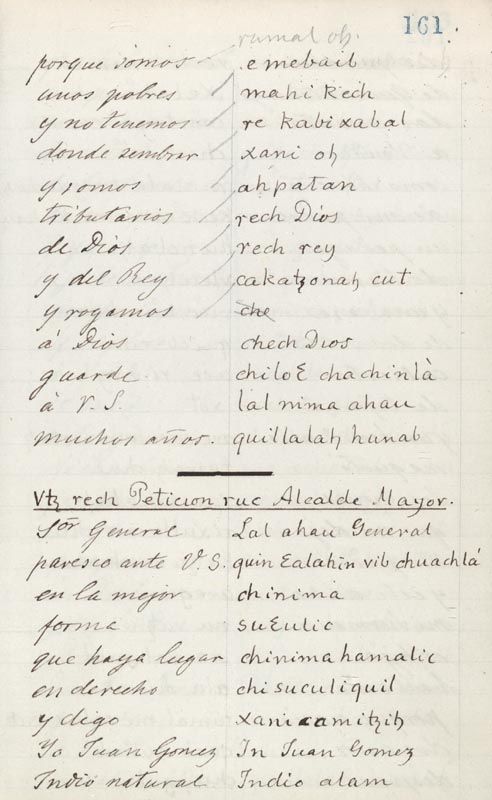 161
rumal oh.
porque somos e mebail
unos pobres mahi kech
y no tenemos re kabixabal
donde sembrar xani oh
y somos ahpatan
tributarios rech Dios
de Dios rech rey
y del Rey cakatꜩonah cut
y rogamos che
á Dios chech Dios
guarde chiloƐ chachinlà
à V. S. lal nima ahau
muchos años. quillalah hunab
Vtꜩ rech Peticion ruc Alcalde Mayor.
Sor. General Lal ahau General
paresco ante V. S. quin Ɛalahin vib chuachlá
en la mejor chinima
forma suƐulic
que haya lugar chinimahamalic
en derecho chi suculiquil
y digo xani camitꜩih
Yo Juan Gomez In Juan Gomez
Indio natural Indio alam